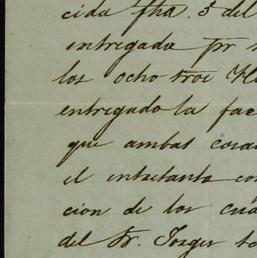 cida fha. 5 del
entregada pr
los ocho
entregado la fac
que ambas cosas
el entretanto con
cion de los
del Sr.